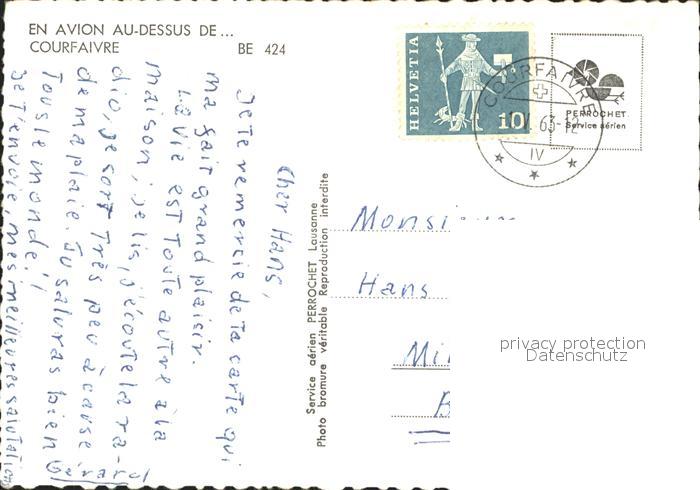 EN AVION AU-DESSUS DE...
COURFAIVRE BE 424
HELVETIA
10
COURFAIVRE
63-12
IV
PERROCHET
Service aérien
Cher Hans,
Je te remercie de ta carte qui
ma fait grand plaisir.
La vie est toute autre à la
maison; je lis, j'écoute la ra-
dio, je sort très peu à cause
de ma plaie. Tu saluras bien
tous le monde!!
Je t'envoie, mes meilleures salutations
Gérard
Service aérien PERROCHET Lausanne
Photo bromure véritable Reproduction interdite
Monsieur
Hans
Mi
B
privacy protection
Datenschutz